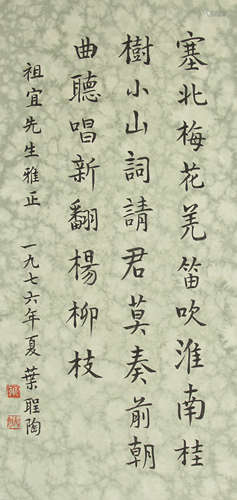 塞北梅花羌笛吹淮南桂
樹小山詞請君莫奏前朝
曲聽唱新翻楊柳枝
祖宜先生雅正 一九七六年夏 葉聖陶